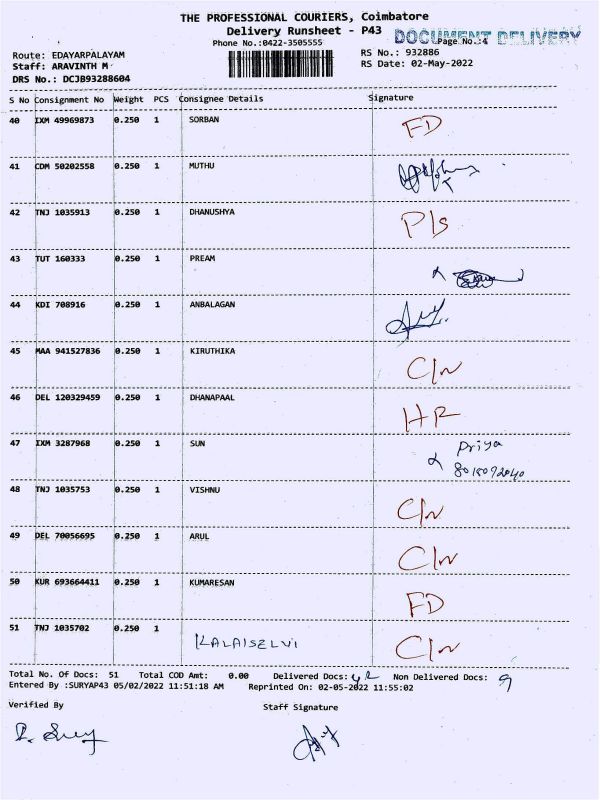 THE PROFESSIONAL COURIERS, Coimbatore
Delivery Runsheet - P43
DOCUMENT DELIVERY
Phone No.:0422-3505555
Page No.:4
Route: EDAYARPALAYAM
RS No.: 932886
Staff: ARAVINTH M
RS Date: 02-May-2022
DRS No.: DCJB93288604
S No Consignment No Weight PCS Consignee Details Signature
40 IXM 49969873 0.250 1 SORBAN FD
41 CDM 50202558 0.250 1 MUTHU
42 TNJ 1035913 0.250 1 DHANUSHYA P/s
43 TUT 160333 0.250 1 PREAM
44 KDI 708916 0.250 1 ANBALAGAN
45 MAA 941527836 0.250 1 KIRUTHIKA C/N
46 DEL 120329459 0.250 1 DHANAPAAL HR
47 IXM 3287968 0.250 1 SUN Priya
48 TNJ 1035753 0.250 1 VISHNU C/N
49 DEL 70056695 0.250 1 ARUL C/N
50 KUR 693664411 0.250 1 KUMARESAN FD
51 TNJ 1035702 0.250 1 KALAISELVI C/N
Total No. Of Docs: 51 Total COD Amt: 0.00 Delivered Docs: 42 Non Delivered Docs: 9
Entered By :SURYAP43 05/02/2022 11:51:18 AM Reprinted On: 02-05-2022 11:55:02
Verified By Staff Signature